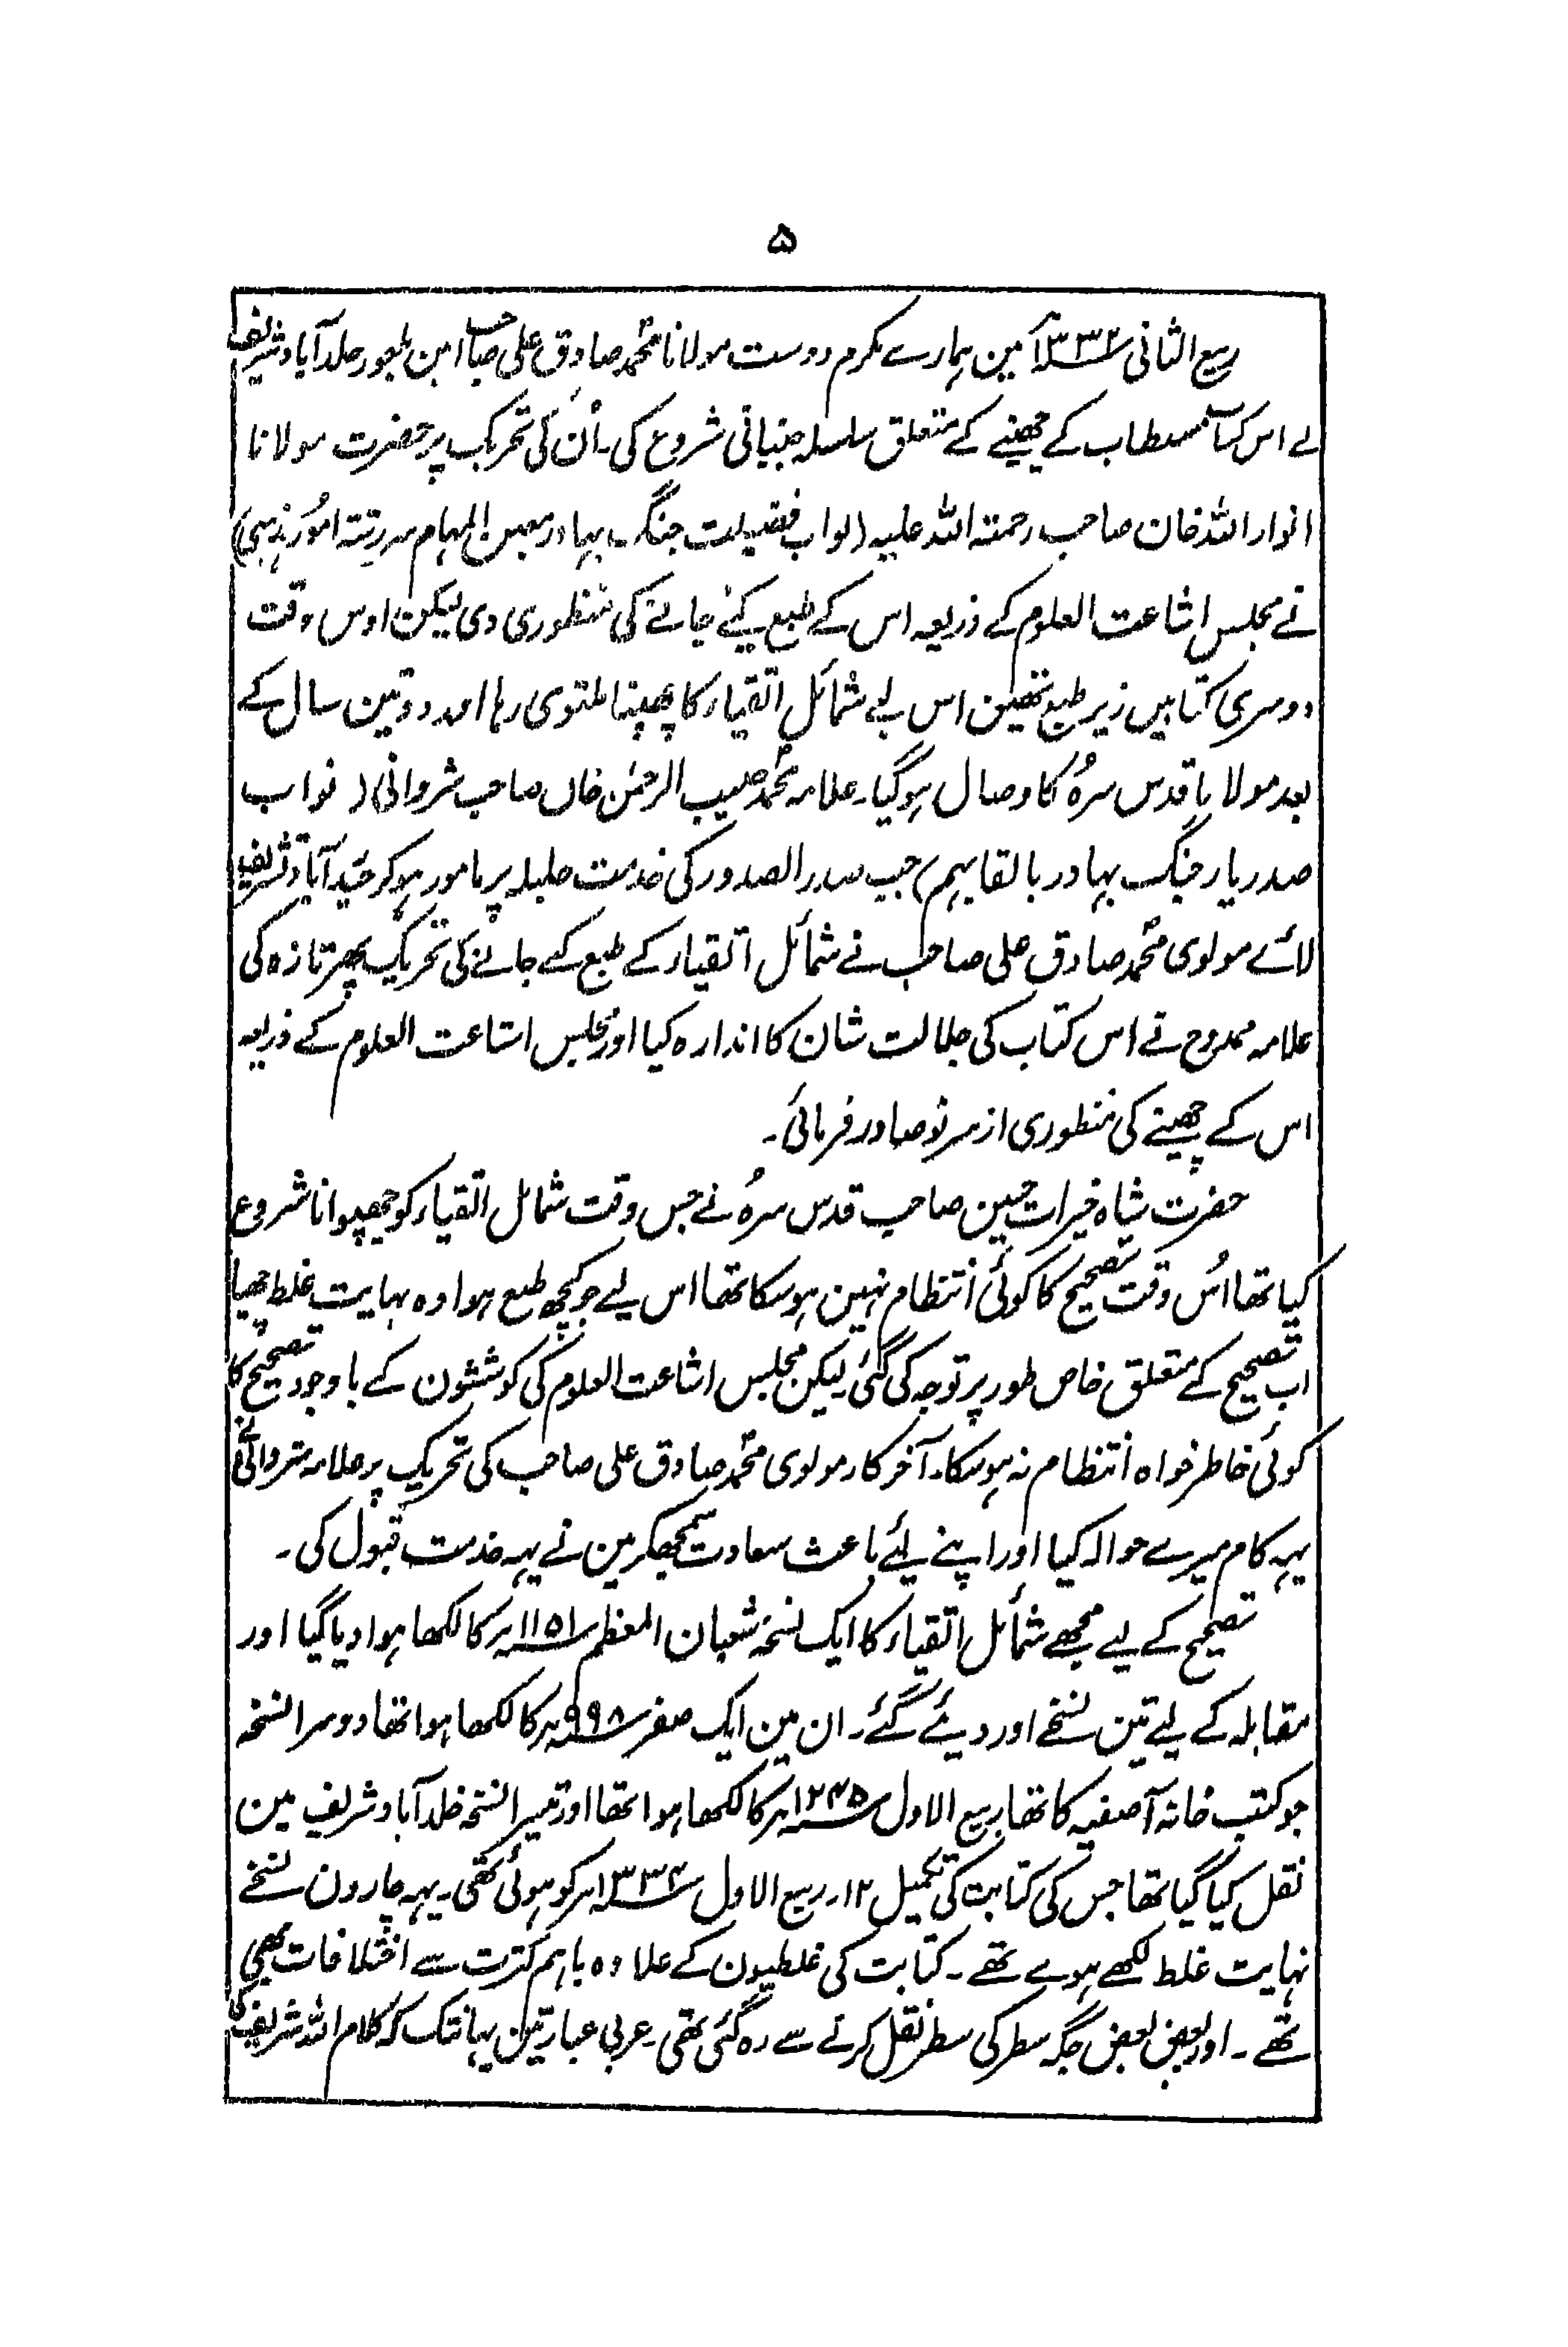 ۵
ربیع الثانی ۱۳۳۴ مین ہمارے مکرم دوست مولانا محمد صادق علی صاحب امین بلعور خلدآباد شریف
نے اس کتاب مستطاب کے چھپنے کے متعلق سلسلہ جنبانی شروع کی۔ اُن کی تحریک پر حضرت مولانا
انوار اللہ خان صاحب رحمتہ اللہ علیہ (نواب فضیلت جنگ بہادر معین المہام سررشتہ امُور مذہبی)
نے مجلس اشاعت العلوم کے ذریعہ اس کے طبع کیئے جانے کی منظوری دی لیکن اوس وقت
دوسری کتابیں زیر طبع تھین اس لیے شمائل اتقیاء کا چھپنا ملتوی رہا اور دو تین سال کے
بعد مولانا قدس سرہُ کا وصال ہوگیا۔ علامہ محمد حبیب الرحمٰن خاں صاحب شروانی (نواب
صدر یار جنگ بہادر بالقابہم) جب صدر الصدور کی خدمت جلیلہ پر مامور ہوکر حیدآباد تشریف
لائے مولوی محمد صادق علی صاحب نے شمائل اتقیاء کے طبع کیے جانے کی تحریک پھر تازہ کی
علامہ ممدوح نے اس کتاب کی جلالت شان کا اندازہ کیا اور مجلس اشاعت العلوم کے ذریعہ
اس کے چھپنے کی منظوری از سر نو صادر فرمائی۔
حضرت شاہ خیرات حسین صاحب قدس سرہُ نے جس وقت شمائل اتقیاء کو چھپوانا شروع
کیا تھا اُس وقت تصحیح کا کوئی انتظام نہین ہوسکا تھا اس لیے جو کچھ طبع ہوا وہ نہایت غلط چھپا
اب تصحیح کے متعلق خاص طور پر توجہ کی گئی لیکن مجلس اشاعت العلوم کی کوششون کے باوجود تصحیح کا
کوئی خاطر خواہ انتظام نہ ہوسکا۔ آخر کار مولوی محمد صادق علی صاحب کی تحریک پر علامہ شروانی نے
یہہ کام میرے حوالہ کیا اور اپنے لیئے باعث سعادت سمجھکر مین نے یہہ خدمت قبول کی۔
تصحیح کے لیے مجھے شمائل اتقیاء کا ایک نسخہ شعبان المعظم ۱۱۵۱ ہر کا لکھا ہوا دیا گیا اور
مقابلہ کے لیے تین نسخے اور دیئے گئے۔ ان مین ایک صفر ۹۹۸ ہر کا لکھا ہوا تھا دوسرا نسخہ
جو کتب خانہ آصفیہ کا تھا ربیع الاول ۱۲۴۵ ہر کا لکھا ہوا تھا اور تیسرا نسخہ خلدآباد شریف مین
نقل کیا گیا تھا جس کی کتابت کی تکمیل ۱۲۔ ربیع الاول ۱۳۳۴ ہر کو ہوئی تھی۔ یہہ چارون نسخے
نہایت غلط لکھے ہوے تھے۔ کتابت کی غلطیون کے علاوہ باہم کثرت سے اختلافات بھی
تھے۔ اور بعض بعض جگہ سطر کی سطر نقل کرنے سے رہ گئی تھی۔ عربی عبارتین یہانتک کہ کلام اللہ شریف کی